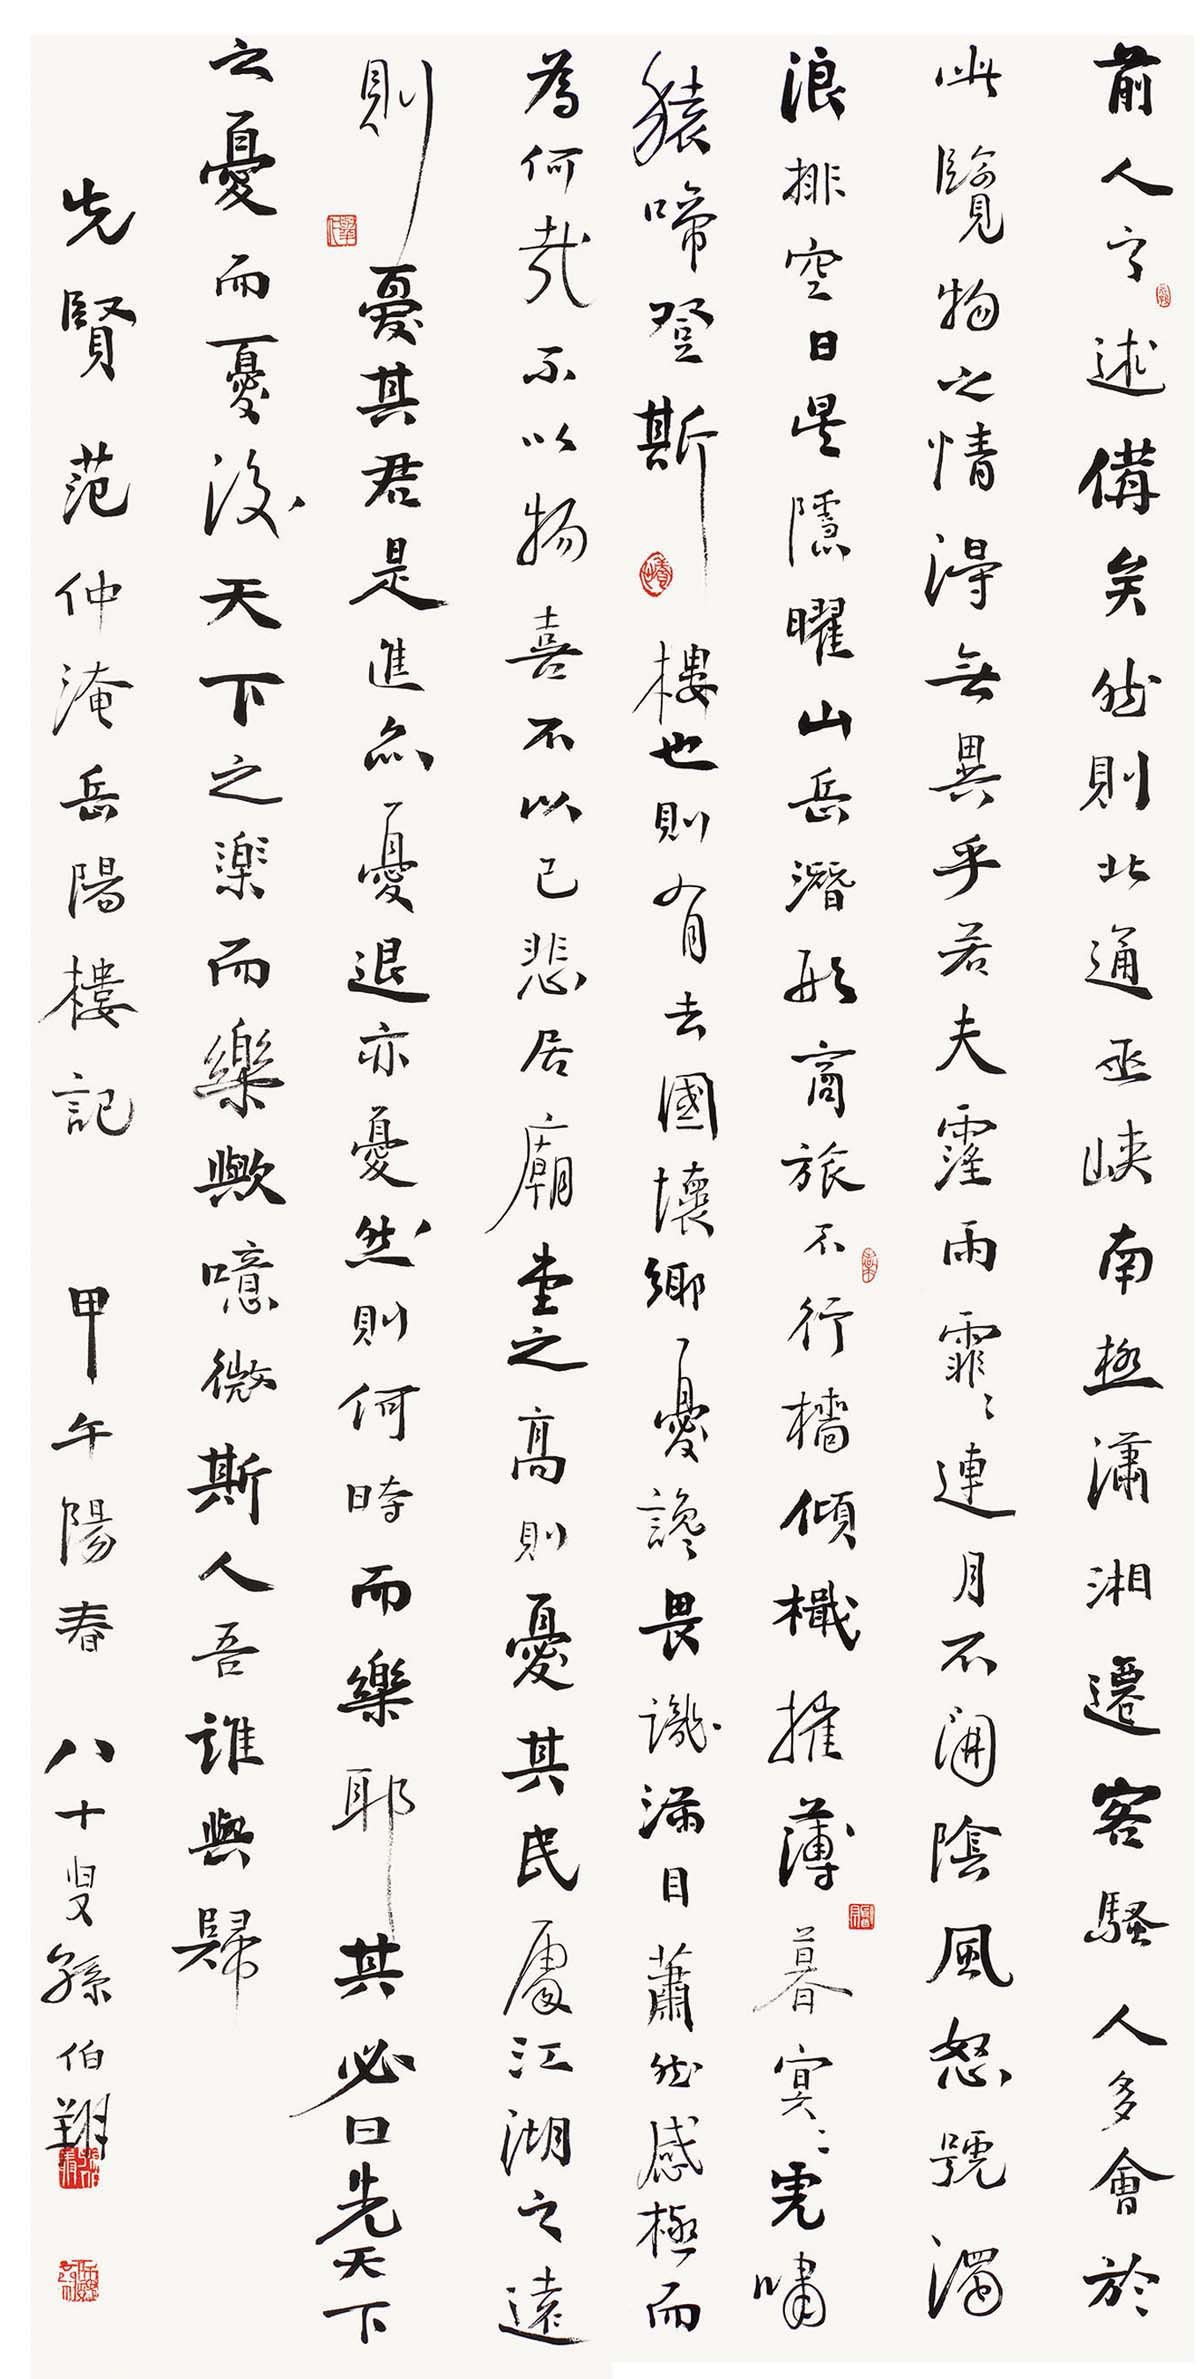 前人之述備矣然則北通巫峽南極瀟湘遷客騷人多會於
此覽物之情得無異乎若夫霪雨霏〻連月不開陰風怒號濁
浪排空日星隱曜山岳潛形商旅不行檣傾檝摧薄暮冥〻虎嘯
猿啼登斯樓也則有去國懷鄉憂讒畏譏滿目蕭然感極而
為何哉不以物喜不以己悲居廟堂之高則憂其民處江湖之遠
則憂其君是進亦憂退亦憂然則何時而樂耶其必曰先天下
之憂而憂後天下之楽而樂歟噫微斯人吾誰與歸
先賢范仲淹岳陽樓記 甲午陽春 八十叟孫伯翔